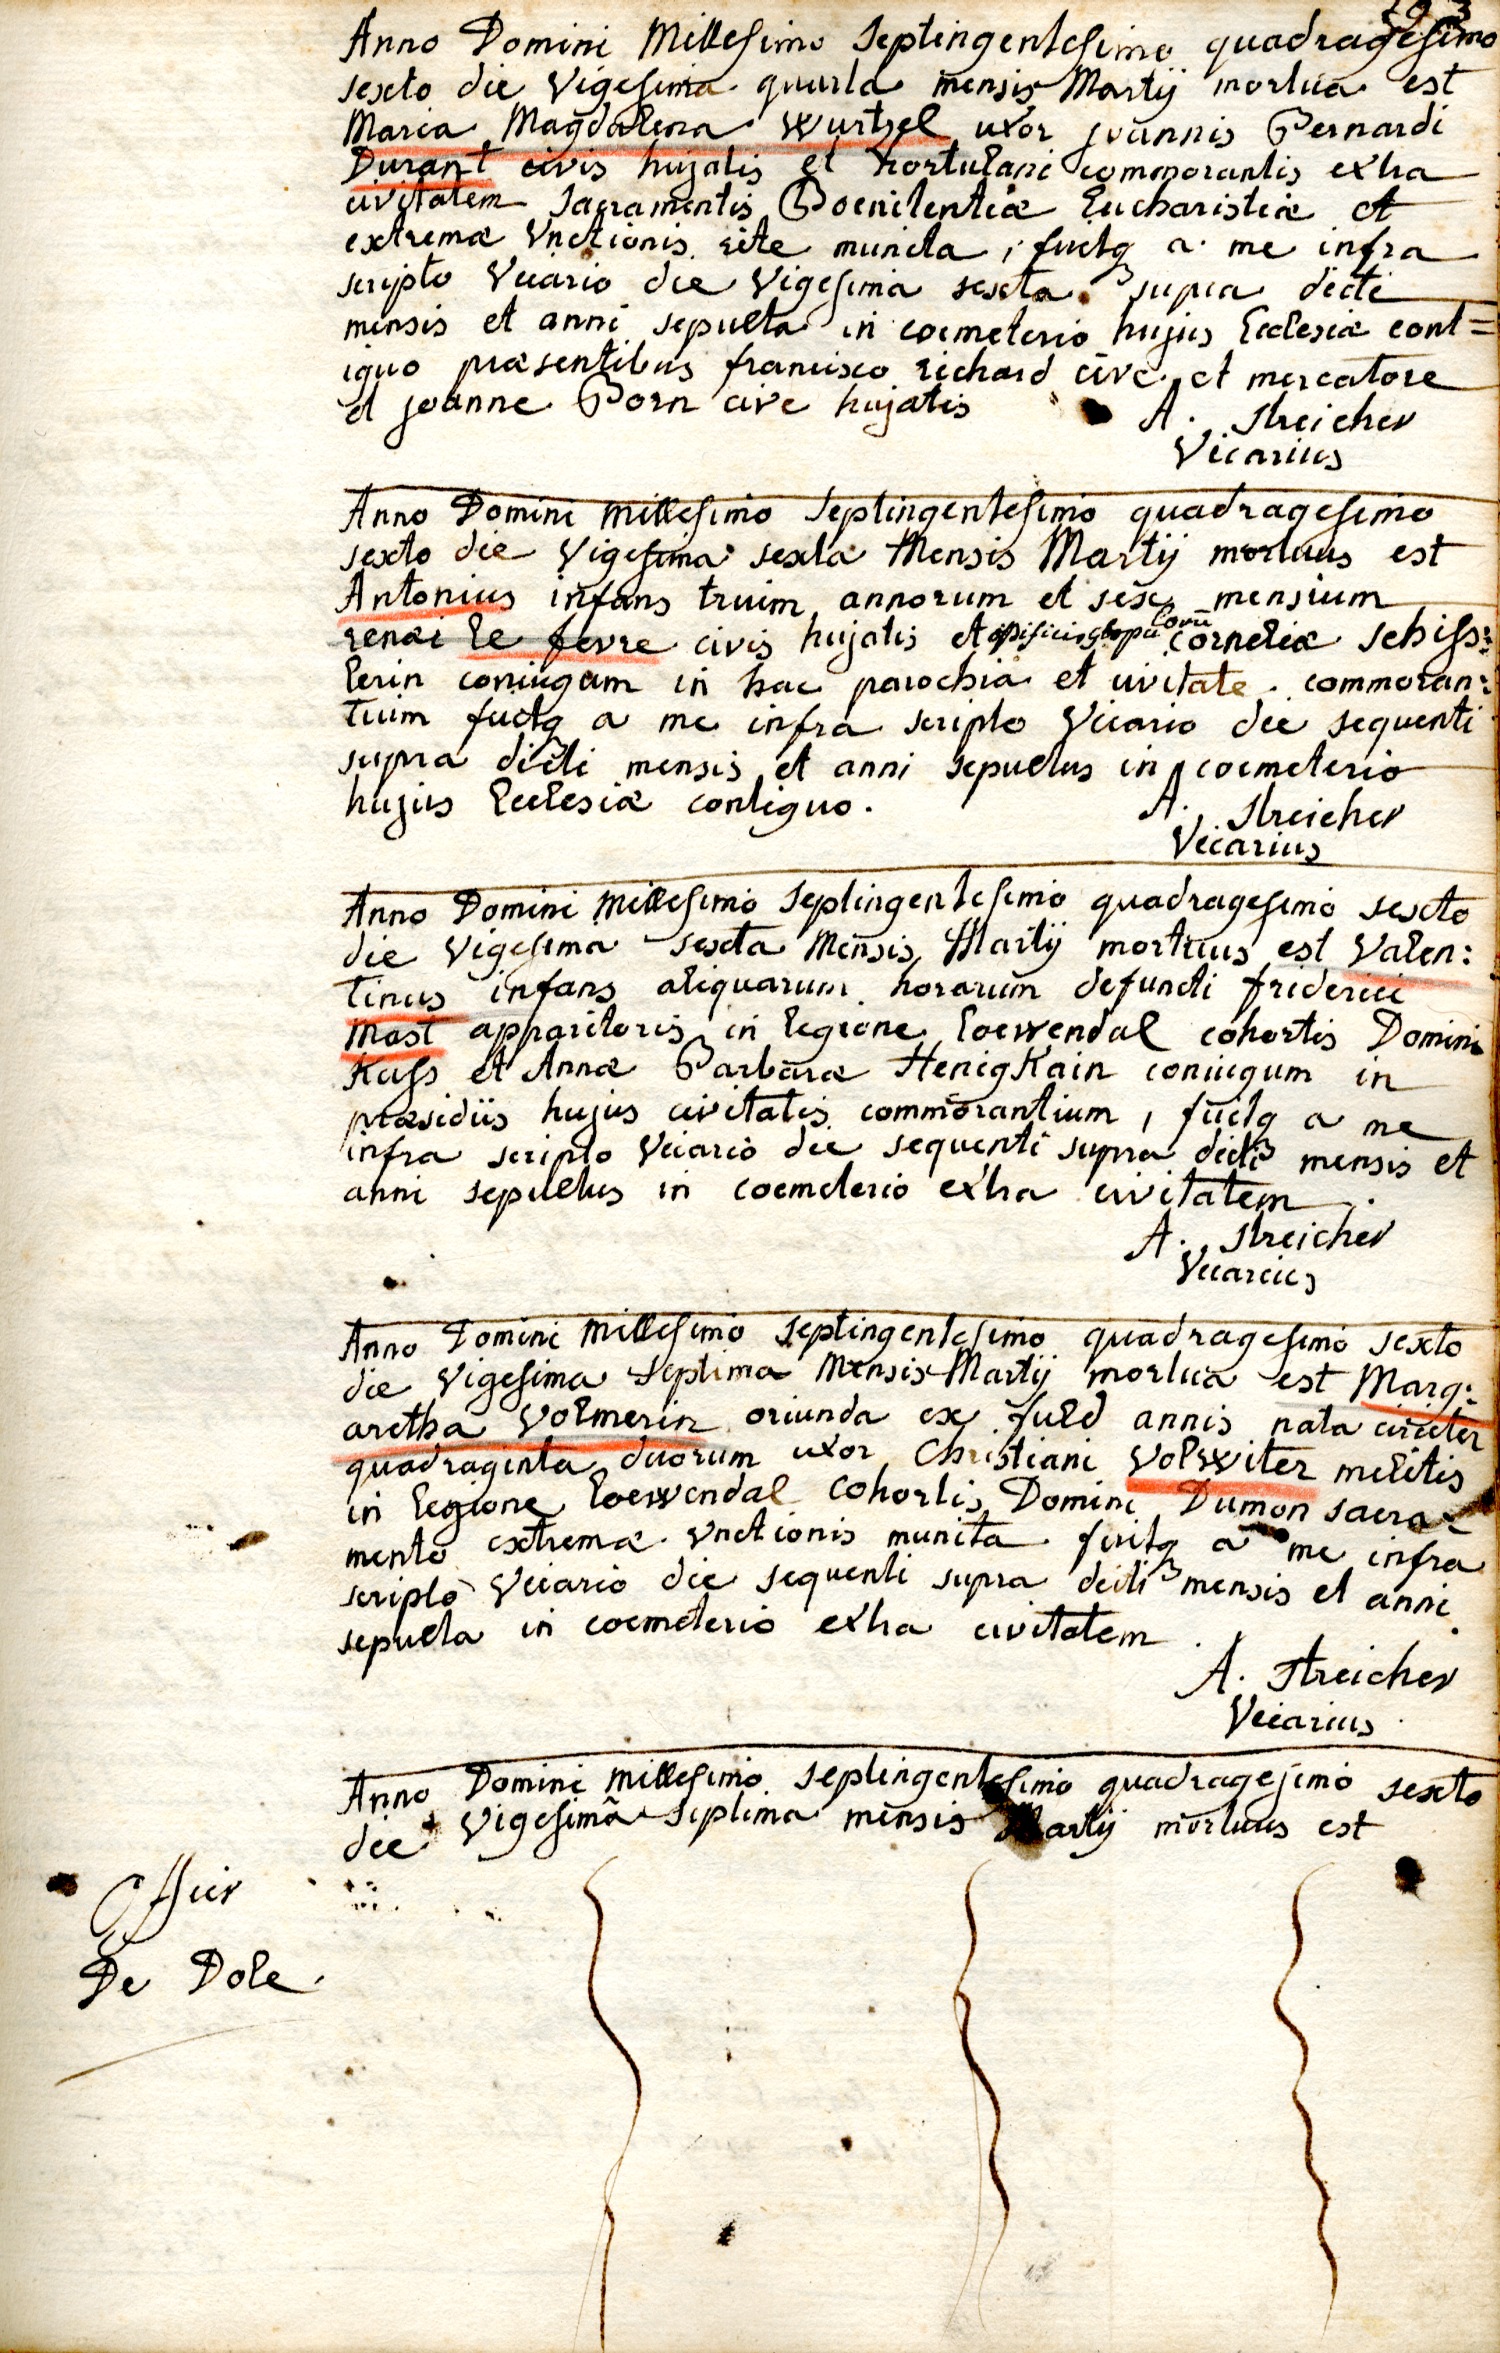 Anno Domini Millesimo Septingentesimo quadragesimo
sexto die Vigesima quarta mensis Martij mortua est
Maria Magdalena Wurtzel uxor joannis Bernardi
Durant civis hujatis et hortulani commorantis extra
civitatem Sacramentis Poenitentiæ Eucharistiæ et
extremæ Unctionis rite munita, fuitq a me infra
scripto Vicario die Vigesima sexta supra dicti
mensis et anni sepulta in coemeterio hujus Ecclesiæ cont=
iguo præsentibus francisco richard cive et mercatore
et joanne Born cive hujatis
A. Streicher
Vicarius
Anno Domini millesimo Septingentesimo quadragesimo
sexto die Vigesima sexta Mensis Martij mortuus est
Antonius infans trium annorum et sex mensium
renati le fevre civis hujatis et corneliæ schiss:
lerin coniugum in hac parochia et civitate commoran:
tium fuitq a me infra scripto Vicario die sequenti
supra dicti mensis et anni sepultus in coemeterio
hujus Ecclesiæ contiguo.
A. Streicher
Vicarius
Anno Domini millesimo Septingentesimo quadragesimo sexto
die Vigesima sexta Mensis Martij mortuus est Valen:
tinus infans aliquarum horarum defuncti friderici
Mast apparitoris in legione Loewendal cohortis Domini
Kass et Annæ Barbaræ Henigkain coniugum in
præsidiis hujus civitatis commorantium, fuitq a me
infra scripto Vicario die sequenti supra dicti mensis et
anni sepultus in coemeterio extra civitatem.
A. Streicher
Vicarius
Anno Domini Millesimo Septingentesimo quadragesimo sexto
die Vigesima Septima Mensis Martij mortua est Marg:
aretha Volmerin oriunda ex fuld annis nata circiter
quadraginta duorum uxor Christiani Volwiter militis
in legione Loewendal Cohortis Domini Dumon sacra=
mento extremæ Unctionis munita fuitq a me infra
scripto Vicario die sequenti supra dicti mensis et anni
sepulta in coemeterio extra civitatem.
A. Streicher
Vicarius.
Anno Domini Millesimo Septingentesimo quadragesimo sexto
die Vigesimã Septima mensis Martij mortuus est
De Dole.